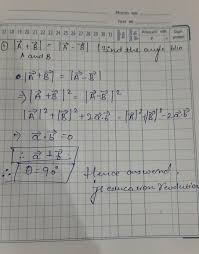 ① |A⃗ + B⃗| = |A⃗ - B⃗| (Find the angle b/w
A and B
|A⃗ + B⃗| = |A⃗ - B⃗|
⇒ |A⃗ + B⃗|² = |A⃗ - B⃗|²
|A⃗|² + |B⃗|² + 2a⃗·b⃗ = |A⃗|² + |B⃗|² - 2a⃗·b⃗
⇒ a⃗·b⃗ = 0
∴ a⃗ ⊥ b⃗
∴ θ = 90° Hence answered
education revolution